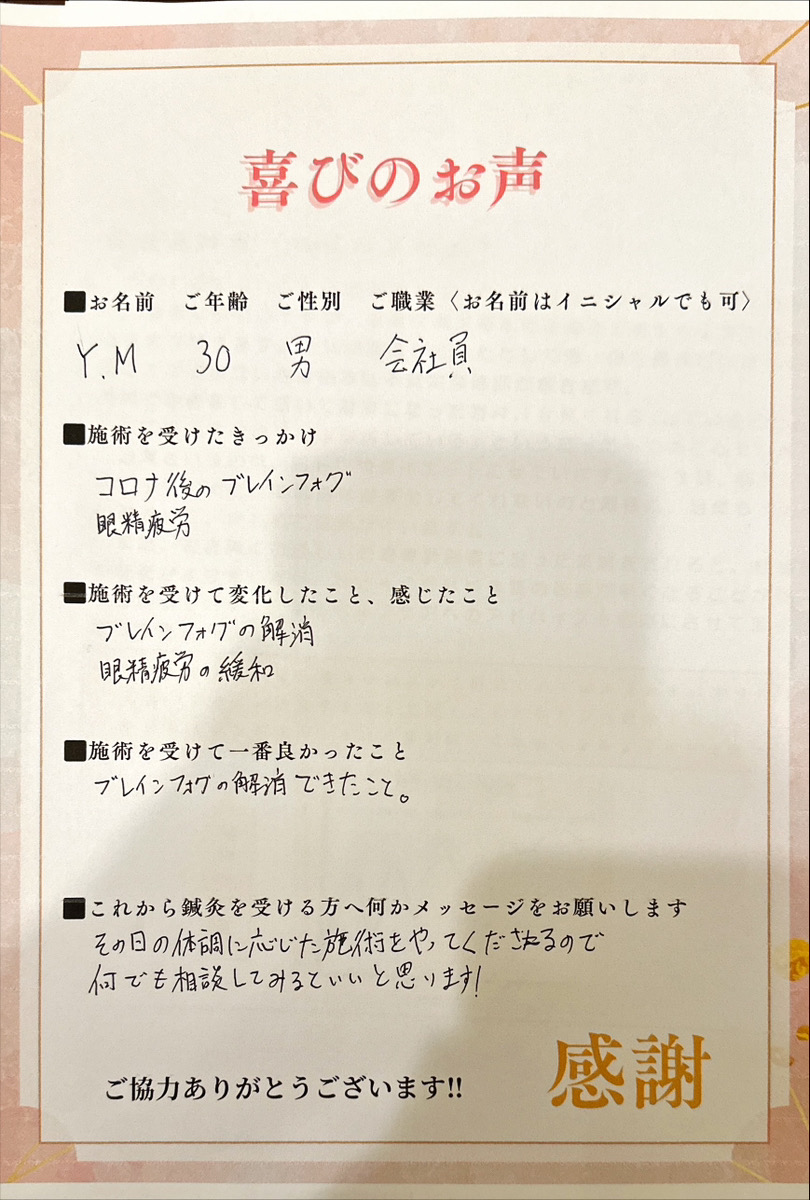 喜びのお声
■お名前　ご年齢　ご性別　ご職業〈お名前はイニシャルでも可〉
Y.M　30　男　会社員
■施術を受けたきっかけ
コロナ後のブレインフォグ
眼精疲労
■施術を受けて変化したこと、感じたこと
ブレインフォグの解消
眼精疲労の緩和
■施術を受けて一番良かったこと
ブレインフォグの解消できたこと。
■これから鍼灸を受ける方へ何かメッセージをお願いします
その日の体調に応じた施術をやってくださるので
何でも相談してみるといいと思ります!
ご協力ありがとうございます!!
感謝